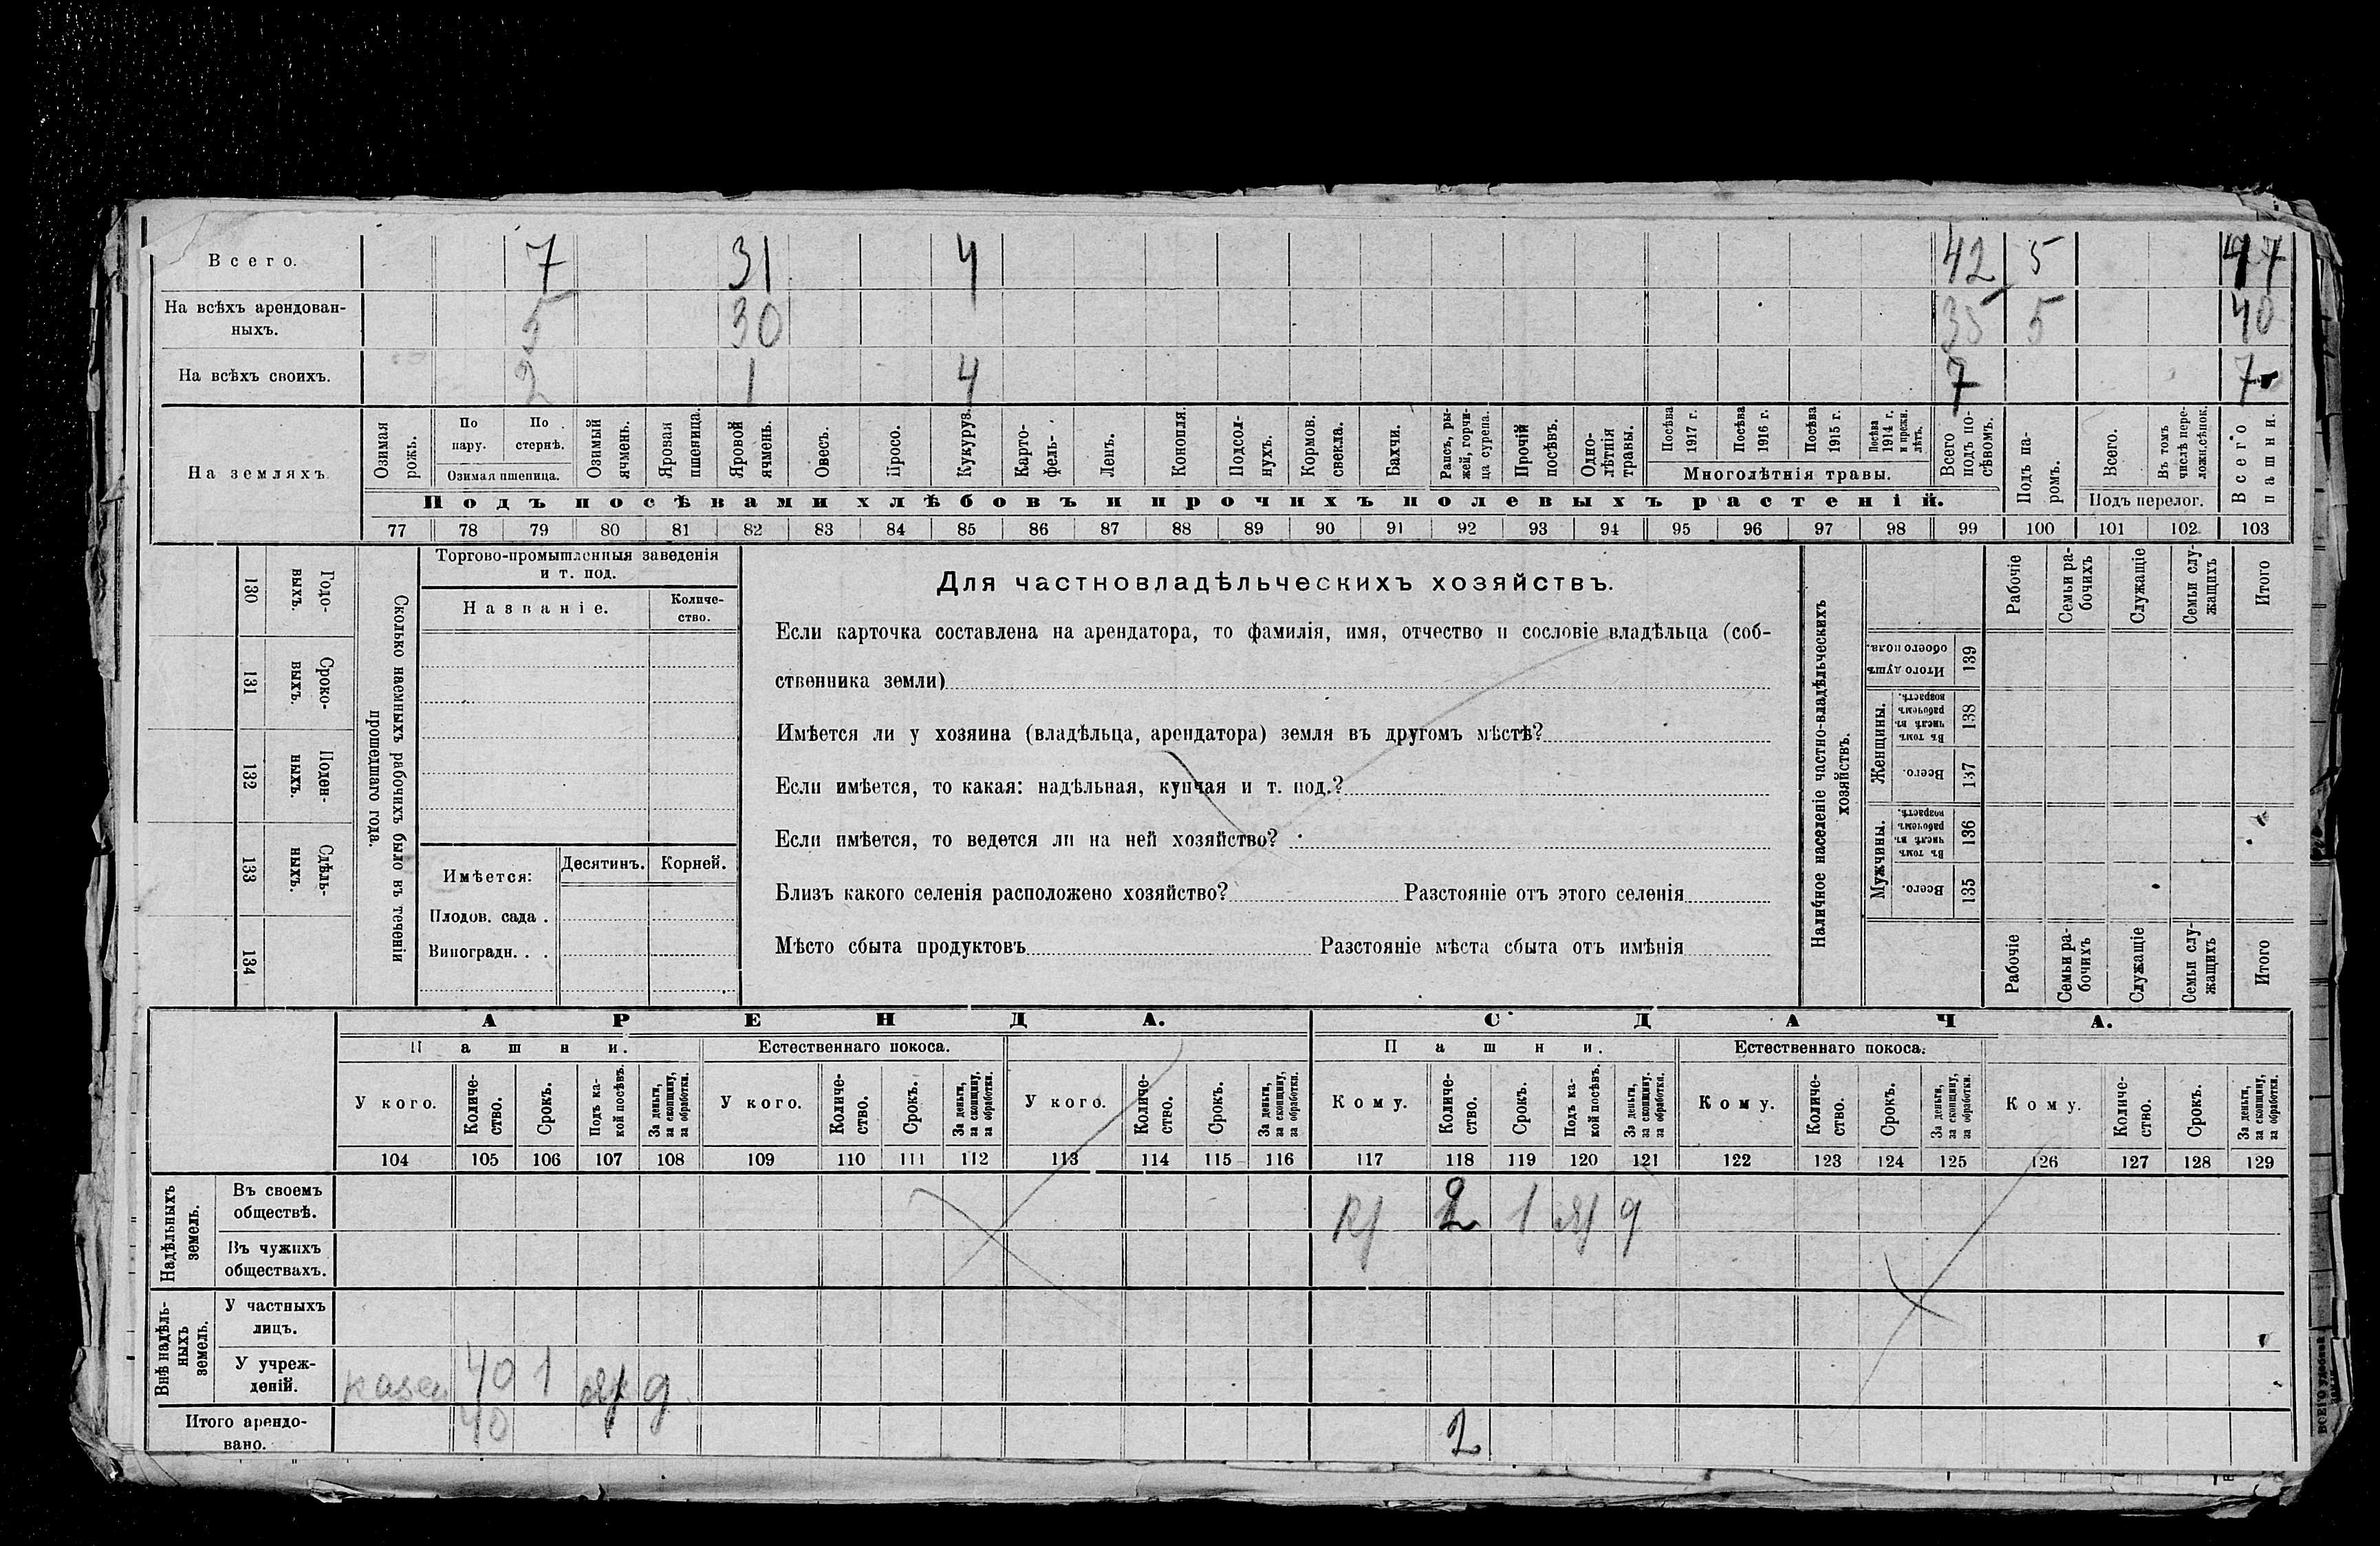 Всего. 7 31 4 42 5 47
На всѣхъ арендован-
ныхъ. 5 30 35 5 40
На всѣхъ своихъ. 2 1 4 7 7
На земляхъ.
Озимая рожь.
По пару.
По стернѣ.
Озимая пшеница.
Озимый ячмень.
Яровая пшеница.
Яровой ячмень.
Овесъ.
Просо.
Кукуруз.
Карто-
фель-
Ленъ.
Конопля.
Подсол-
нухъ.
Кормов.
свекла.
Бахчи.
Рапсъ, ры-
жей, горчи-
ца сурепа.
Прочій
посѣвъ.
Одно-
лѣтнія
травы.
Посѣва
1917 г.
Посѣва
1916 г.
Посѣва
1915 г.
Посѣва
1914 г.
и прежн.
лѣтъ.
Многолѣтнія травы.
Всего
подъ по-
сѣвомъ.
Подъ па-
ромъ.
Всего.
Въ томъ
числѣ пере-
ложн.сѣнок.
Подъ перелог.
Всего
пашни.
Подъ посѣвами хлѣбовъ и прочихъ полевыхъ растеній.
77 78 79 80 81 82 83 84 85 86 87 88 89 90 91 92 93 94 95 96 97 98 99 100 101 102 103
130 Годо-
выхъ.
131 Сроко-
выхъ.
132 Поден-
ныхъ.
133 Сдѣль-
ныхъ.
134
Сколько наемныхъ рабочихъ было въ теченіи
прошедшаго года.
Торгово-промышленныя заведенія
и т. под.
Названіе.
Количе-
ство.
Имѣется: Десятинъ. Корней.
Плодов. сада .
Виноградн. . .
Для частновладѣльческихъ хозяйствъ.
Если карточка составлена на арендатора, то фамилія, имя, отчество и сословіе владѣльца (соб-
ственника земли)
Имѣется ли у хозяина (владѣльца, арендатора) земля въ другомъ мѣстѣ?
Если имѣется, то какая: надѣльная, купчая и т. под.?
Если имѣется, то ведется ли на ней хозяйство?
Близъ какого селенія расположено хозяйство? Разстояніе отъ этого селенія
Мѣсто сбыта продуктовъ Разстояніе мѣста сбыта отъ имѣнія
Наличное населеніе частно-владѣльческихъ
хозяйствъ.
Рабочіе
Семьи ра-
бочихъ
Служащіе
Семьи слу-
жащихъ
Итого
Итого душъ
обоего пола.
139
Женщины.
Въ томъ
числѣ въ
рабочемъ
возрастѣ.
138
Всего.
137
Мужчины.
Въ томъ
числѣ въ
рабочемъ
возрастѣ.
136
Всего.
135
Рабочіе
Семьи ра-
бочихъ
Служащіе
Семьи слу-
жащихъ
Итого
АРЕНДА. СДАЧА.
Пашни. Естественнаго покоса. Пашни. Естественнаго покоса.
У кого.
Количе-
ство.
Срокъ.
Подъ ка-
кой посѣвъ.
За деньги,
за скопщину,
за обработки.
У кого.
Количе-
ство.
Срокъ.
За деньги,
за скопщину,
за обработки.
У кого.
Количе-
ство.
Срокъ.
За деньги,
за скопщину,
за обработки.
Кому.
Количе-
ство.
Срокъ.
Подъ ка-
кой посѣвъ.
За деньги,
за скопщину,
за обработки.
Кому.
Количе-
ство.
Срокъ.
За деньги,
за скопщину,
за обработки.
Кому.
Количе-
ство.
Срокъ.
За деньги,
за скопщину,
за обработки.
104 105 106 107 108 109 110 111 112 113 114 115 116 117 118 119 120 121 122 123 124 125 126 127 128 129
Надѣльныхъ
земель.
Въ своемъ
обществѣ. 2 1 д
Въ чужихъ
обществахъ.
Внѣ надѣль-
ныхъ
земель.
У частныхъ
лицъ.
У учреж-
деній. казен 40 1 д
Итого арендо-
вано. 40 2